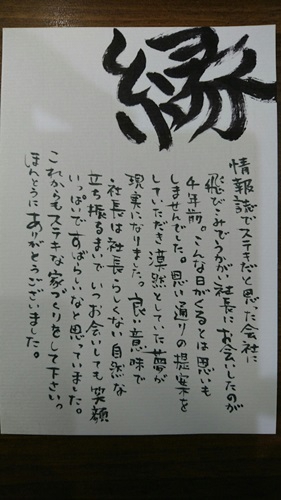 縁
情報誌でステキだと思った会社に
飛びこみでうかがい社長にお会いしたのが
4年前。こんな日がくるとは思いも
しませんでした。思い通りの提案を
していただき漠然としていた夢が
現実になりました。良い意味で
社長は社長らしくない自然な
立ち振るまいで、いつお会いしても笑顔
いっぱいですばらしいなと思っていました。
これからもステキな家づくりをして下さいっ
ほんとうにありがとうございました。